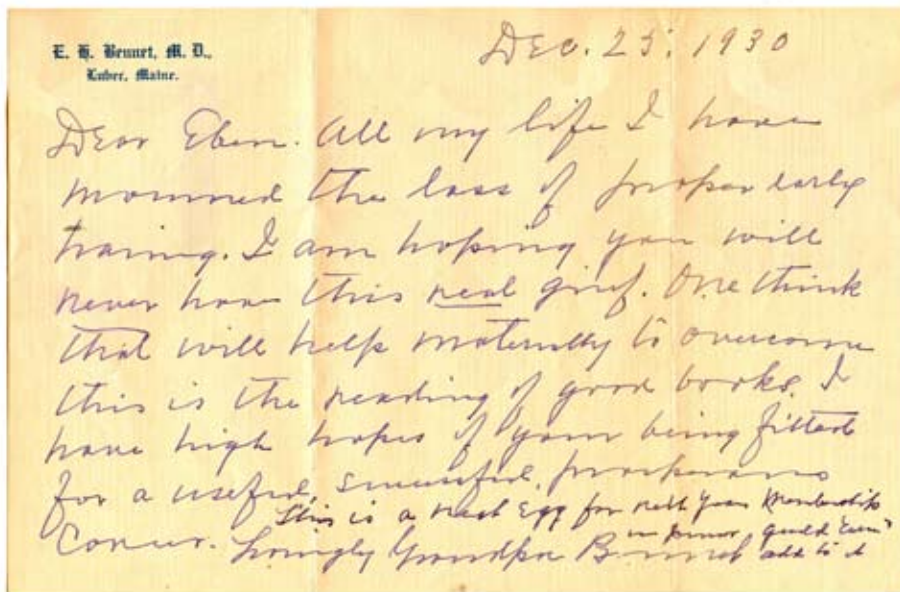 E. H. Bennet, M. D.,
Lubec, Maine.
Dec. 25, 1930
Dear Eben. All my life I have
mourned the loss of proper early
training. I am hoping you will
never have this real grief. One think
that will help maternally to overcome
this is the reading of good books. I
have high hopes of your being fitted
for a useful, successful, prosperous
This is a nest Egg for next year Membership
in Junior Guild Earn &
Career. Lovingly Grandpa Bennet add to it